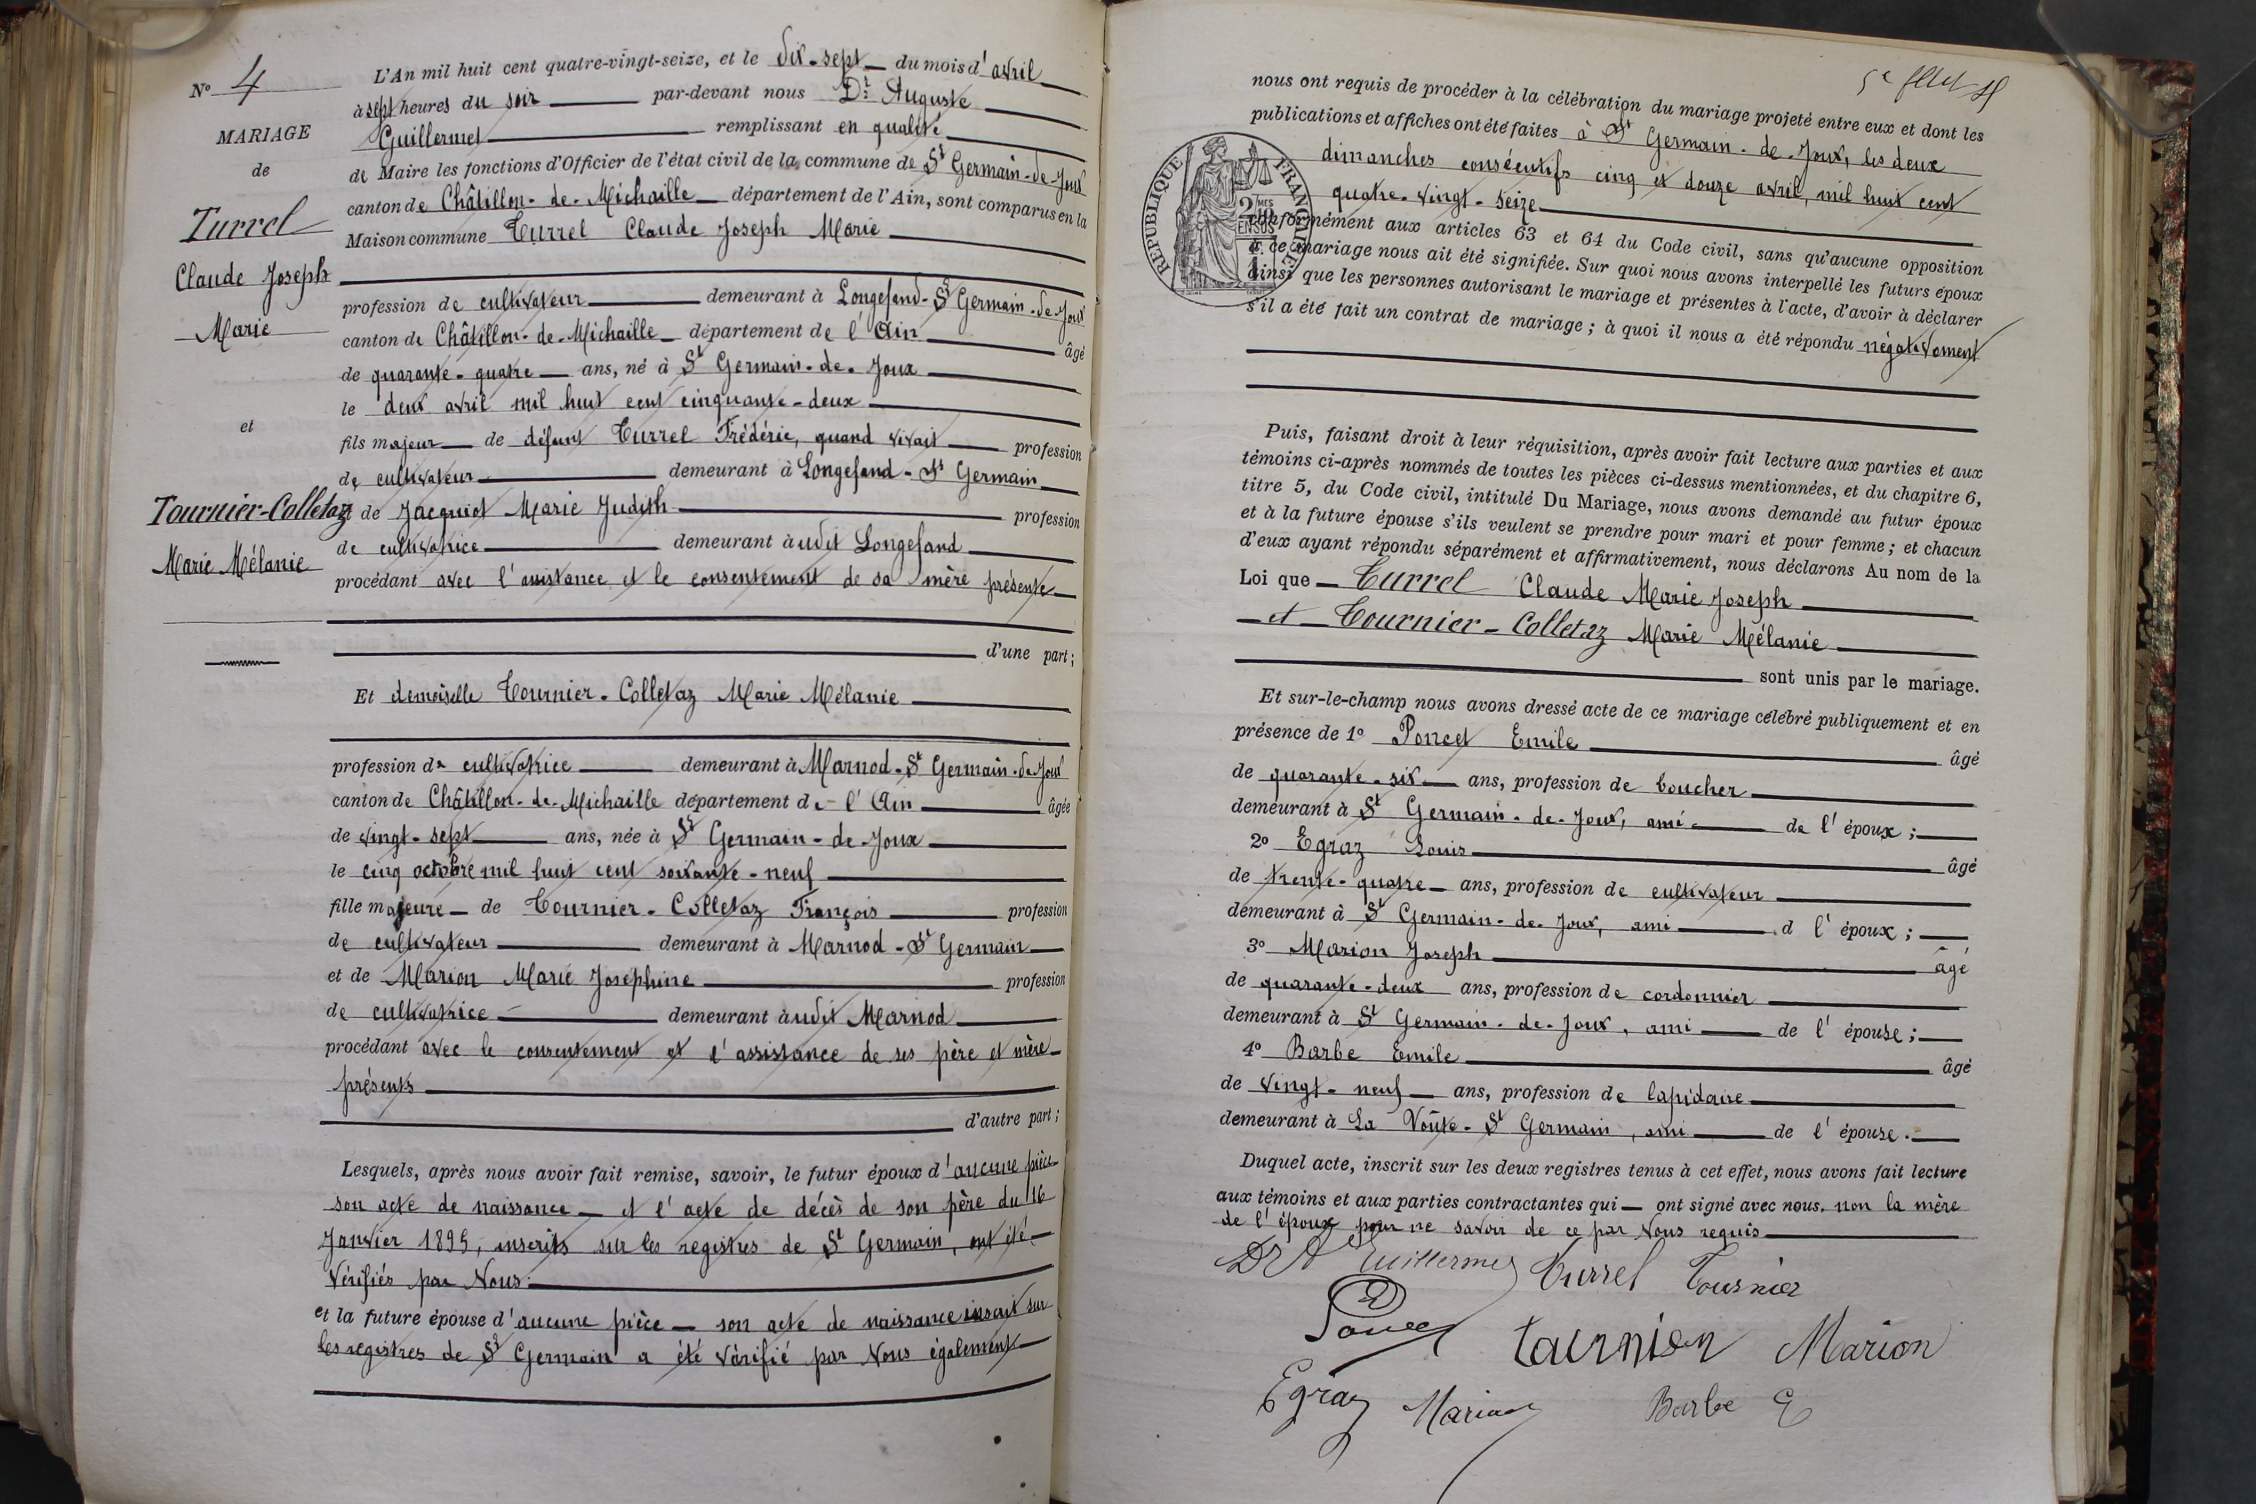 N° 4
MARIAGE
de
Turrel
Claude Joseph
Marie
et
Tournier-Colletaz
Marie Mélanie
L'An mil huit cent quatre-vingt-seize, et le dix-sept du mois d'avril
à sept heures du soir par-devant nous Dr Auguste
Guillermet remplissant en qualité
de Maire les fonctions d'Officier de l'état civil de la commune de St Germain-de-Joux
canton de Châtillon-de-Michaille département de l'Ain, sont comparus en la
Maison commune Turrel Claude Joseph Marie
profession de cultivateur demeurant à Longefand-St Germain-de-Joux
canton de Châtillon-de-Michaille département de l'Ain âgé
de quarante-quatre ans, né à St Germain-de-Joux
le deux avril mil huit cent cinquante-deux
fils majeur de défunt Turrel Frédéric, quand vivait profession
de cultivateur demeurant à Longefand-St Germain
et de Jacquiot Marie Judith profession
de cultivatrice demeurant àudit Longefand
procédant avec l'assistance et le consentement de sa mère présente
d'une part;
Et demoiselle Tournier-Colletaz Marie Mélanie
profession de cultivatrice demeurant à Marnod-St Germain-de-Joux
canton de Châtillon-de-Michaille département de l'Ain âgée
de vingt-sept ans, née à St Germain-de-Joux
le cinq octobre mil huit cent soixante-neuf
fille majeure de Tournier-Colletaz François profession
de cultivateur demeurant à Marnod-St Germain
et de Marion Marie Josephine profession
de cultivatrice demeurant àudit Marnod
procédant avec le consentement et l'assistance de ses père et mère
présents
d'autre part;
Lesquels, après nous avoir fait remise, savoir, le futur époux d'aucune pièce
son acte de naissance et l'acte de décès de son père du 16
Janvier 1895, inscrits sur les registres de St Germain, ont été
vérifiés par Nous.
et la future épouse d'aucune pièce son acte de naissance inscrit sur
les registres de St Germain a été vérifié par Nous également
5e
nous ont requis de procéder à la célébration du mariage projeté entre eux et dont les
publications et affiches ont été faites à St Germain-de-Joux, les deux
dimanches consécutifs cinq et douze avril, mil huit cent
quatre-vingt-seize
RÉPUBLIQUE FRANÇAISE
2 MES
/10
EN SUS
conformément aux articles 63 et 64 du Code civil, sans qu'aucune opposition
à ce mariage nous ait été signifiée. Sur quoi nous avons interpellé les futurs époux
ainsi que les personnes autorisant le mariage et présentes à l'acte, d'avoir à déclarer
s'il a été fait un contrat de mariage; à quoi il nous a été répondu négativement
Puis, faisant droit à leur réquisition, après avoir fait lecture aux parties et aux
témoins ci-après nommés de toutes les pièces ci-dessus mentionnées, et du chapitre 6,
titre 5, du Code civil, intitulé Du Mariage, nous avons demandé au futur époux
et à la future épouse s'ils veulent se prendre pour mari et pour femme; et chacun
d'eux ayant répondu séparément et affirmativement, nous déclarons Au nom de la
Loi que Turrel Claude Marie Joseph
et Tournier-Colletaz Marie Mélanie
sont unis par le mariage.
Et sur-le-champ nous avons dressé acte de ce mariage célébré publiquement et en
présence de 1° Poncet Emile âgé
de quarante-six ans, profession de boucher
demeurant à St Germain-de-Joux, ami de l'époux;
2° Egraz Louis âgé
de trente-quatre ans, profession de cultivateur
demeurant à St Germain-de-Joux, ami d l'époux;
3° Marion Joseph âgé
de quarante-deux ans, profession de cordonnier
demeurant à St Germain-de-Joux, ami de l'épouse;
4° Barbe Emile âgé
de vingt-neuf ans, profession de lapidaire
demeurant à La Voûte-St Germain, ami de l'épouse.
Duquel acte, inscrit sur les deux registres tenus à cet effet, nous avons fait lecture
aux témoins et aux parties contractantes qui ont signé avec nous. non la mère
de l'époux pour ne savoir de ce par Nous requis
Dr A Guillermet Turrel Tournier
Poncet tournier Marion
Egraz Marion Barbe E